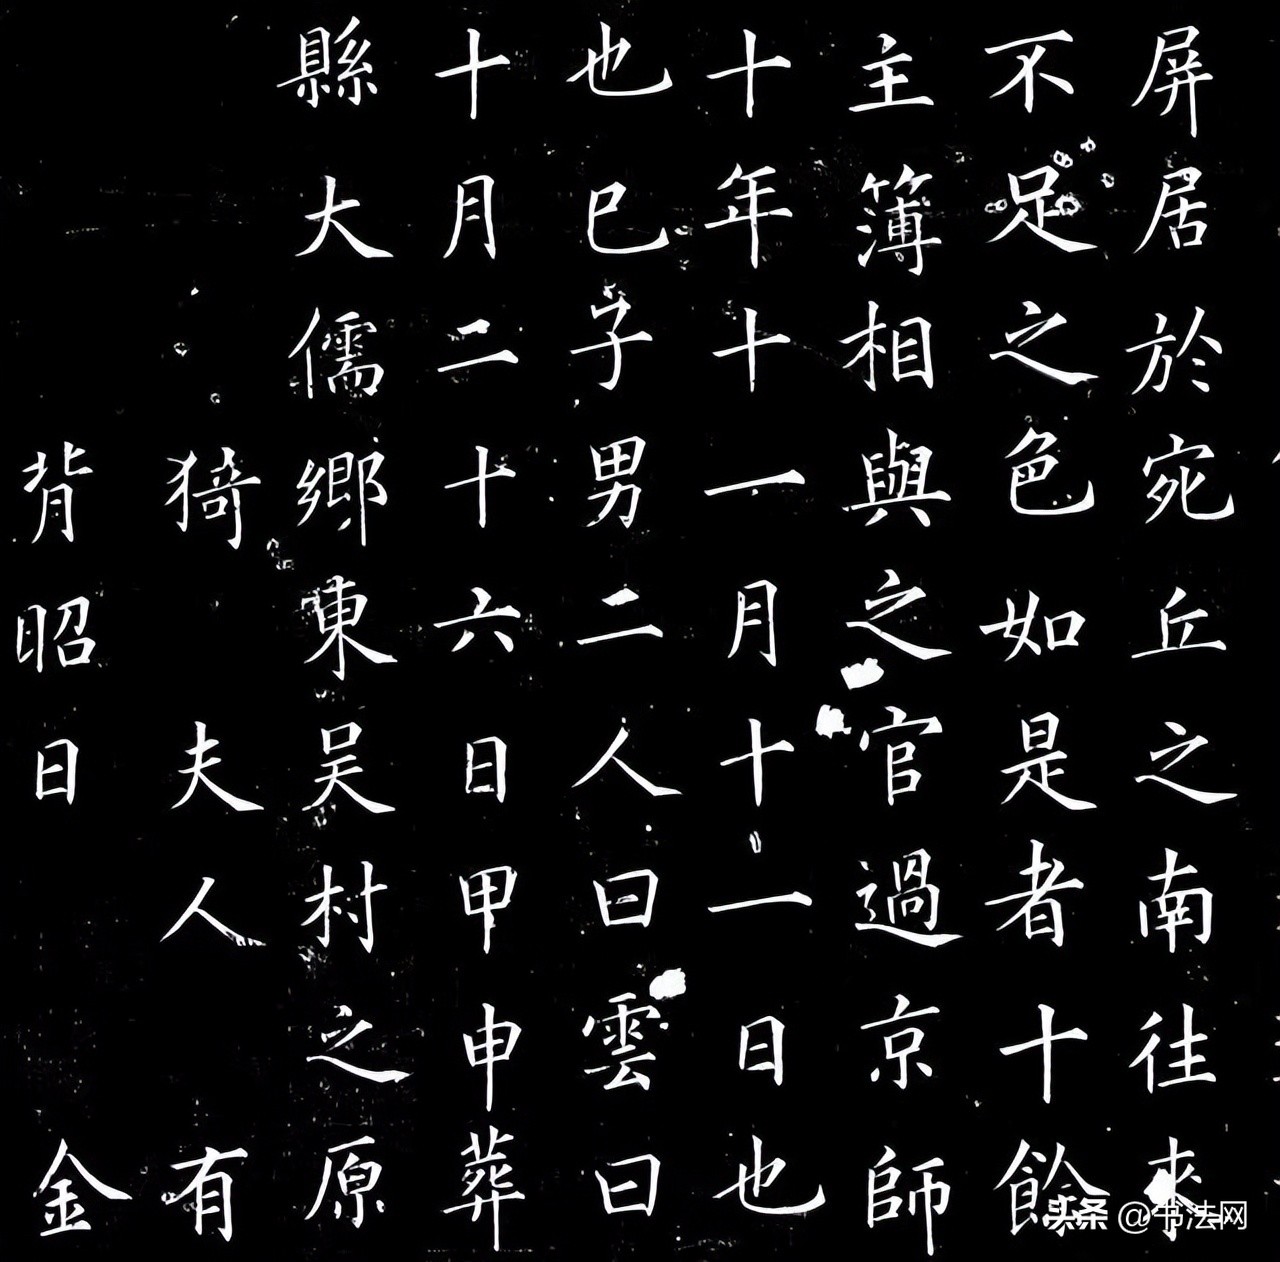 屏居於宛丘之南往來
不足之色如是者十餘
主簿相與之官過京師
十年十一月十一日也
也巳子男二人曰雲曰
十月二十六日甲申葬
縣大儒鄉東吴村之原
猗夫人有
背昭日金
头条 @书法网